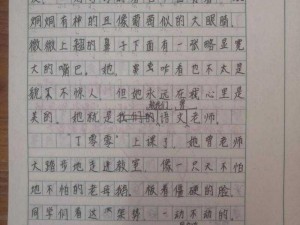 炯炯有神的且像葡萄似的大眼睛，
微微上翘的鼻子下面有一张略显宽
大的嘴巴。她，乍看也不太是
貌美不惊人，但她永远在我心里是
美的。她就是我们的语文老师
“丁零零”上课了，她曹老师
大踏步地走进教室，像一只天不怕
地不怕的老母鹅，做着僵硬的脸
同学们看这架势，一动不动的，